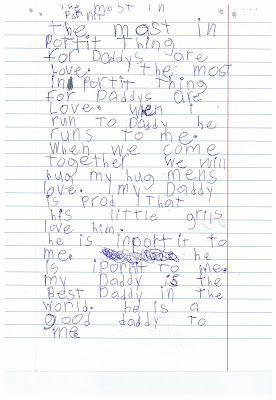 the most in
portnit
the most in
portit thing
for Daddys are
Love. the most
in portit thing
for Daddys are
Love. when i
run to Daddy he
runs to me.
when we come
together we will
hug my hug mens
love. my Daddy
is prod that
his little grils
love him.
he is inportit to
me. he
is iportit to me.
my Daddy is the
Best Daddy in the
world. he is a
good daddy to
me